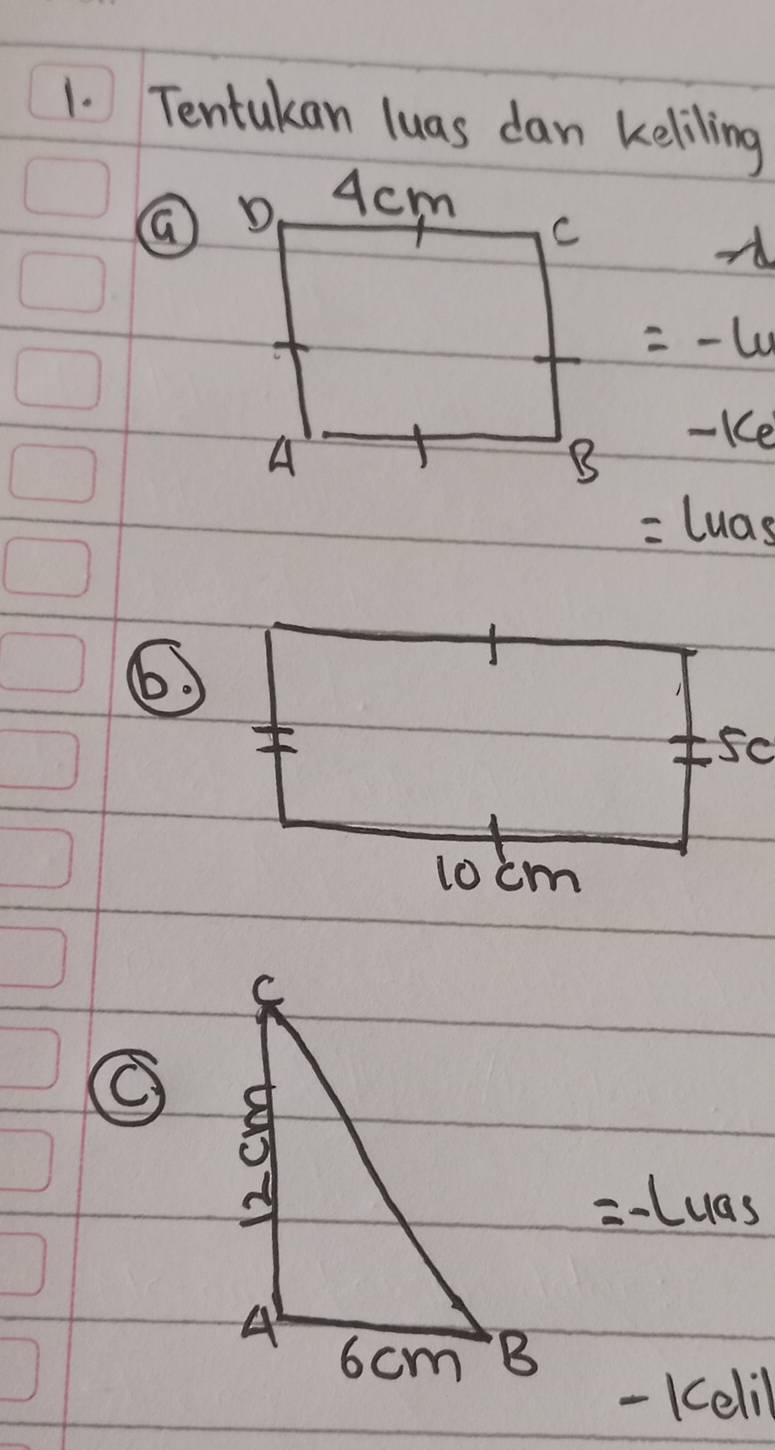 1. Tentukan luas dan keliling
a D 4cm C
= -lu
A B -Ke
= luas
b.
5c
10 cm
C
C.
12 cm
=-Luas
A 6cm B
- Kelil